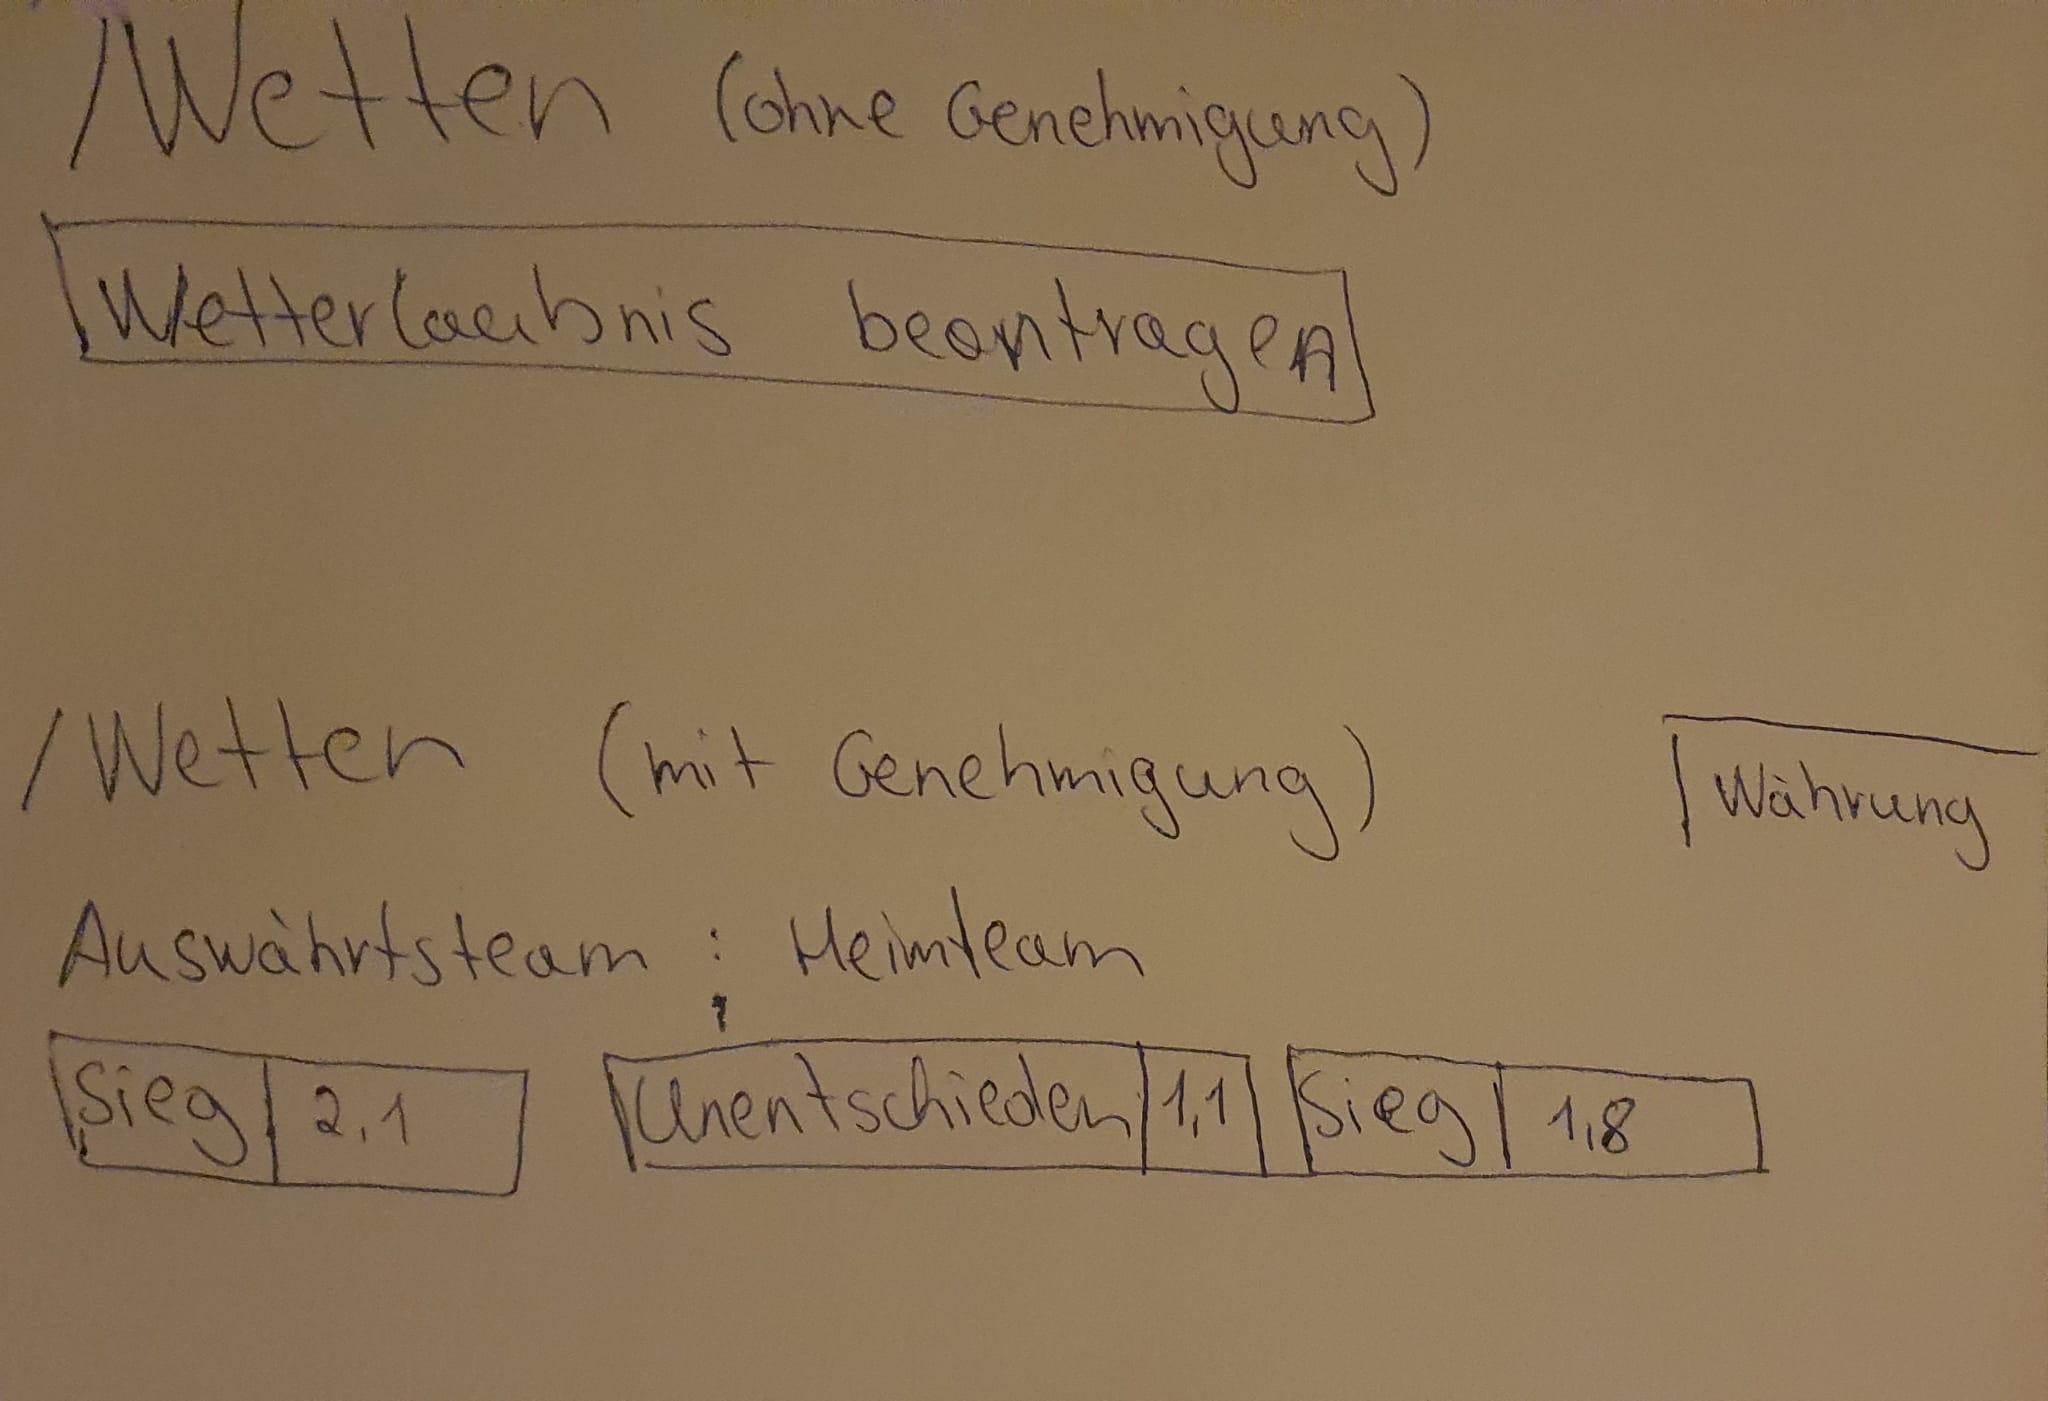 /Wetten (ohne Genehmigung)
Wetterlaubnis beantragen
/Wetten (mit Genehmigung) Währung
Auswährtsteam : Heimteam
Sieg 2,1 Unentschieden 1,1 Sieg 1,8